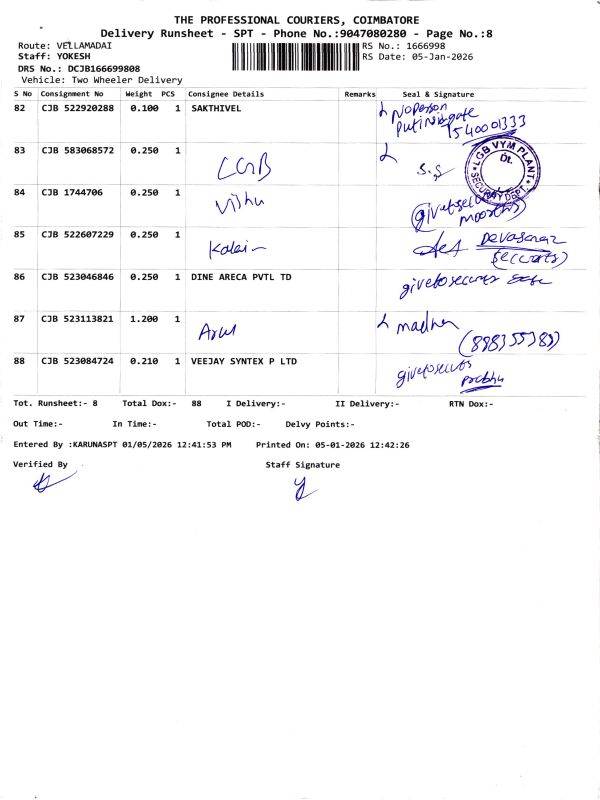 THE PROFESSIONAL COURIERS, COIMBATORE
Delivery Runsheet - SPT - Phone No.:9047080280 - Page No.:8
Route: VELLAMADAI RS No.: 1666998
Staff: YOKESH RS Date: 05-Jan-2026
DRS No.: DCJB166699808
Vehicle: Two Wheeler Delivery
S No Consignment No Weight PCS Consignee Details Remarks Seal & Signature
82 CJB 522920288 0.100 1 SAKTHIVEL No person
gate
83 CJB 583068572 0.250 1 LGB S.S
LGB VYM PLANT
Dt.
SECURITY DEPT.
84 CJB 1744706 0.250 1 Vishu
85 CJB 522607229 0.250 1 Kalai
86 CJB 523046846 0.250 1 DINE ARECA PVTL TD
87 CJB 523113821 1.200 1 Arul
88 CJB 523084724 0.210 1 VEEJAY SYNTEX P LTD
Prabhu
Tot. Runsheet:- 8 Total Dox:- 88 I Delivery:- II Delivery:- RTN Dox:-
Out Time:- In Time:- Total POD:- Delvy Points:-
Entered By :KARUNASPT 01/05/2026 12:41:53 PM Printed On: 05-01-2026 12:42:26
Verified By Staff Signature